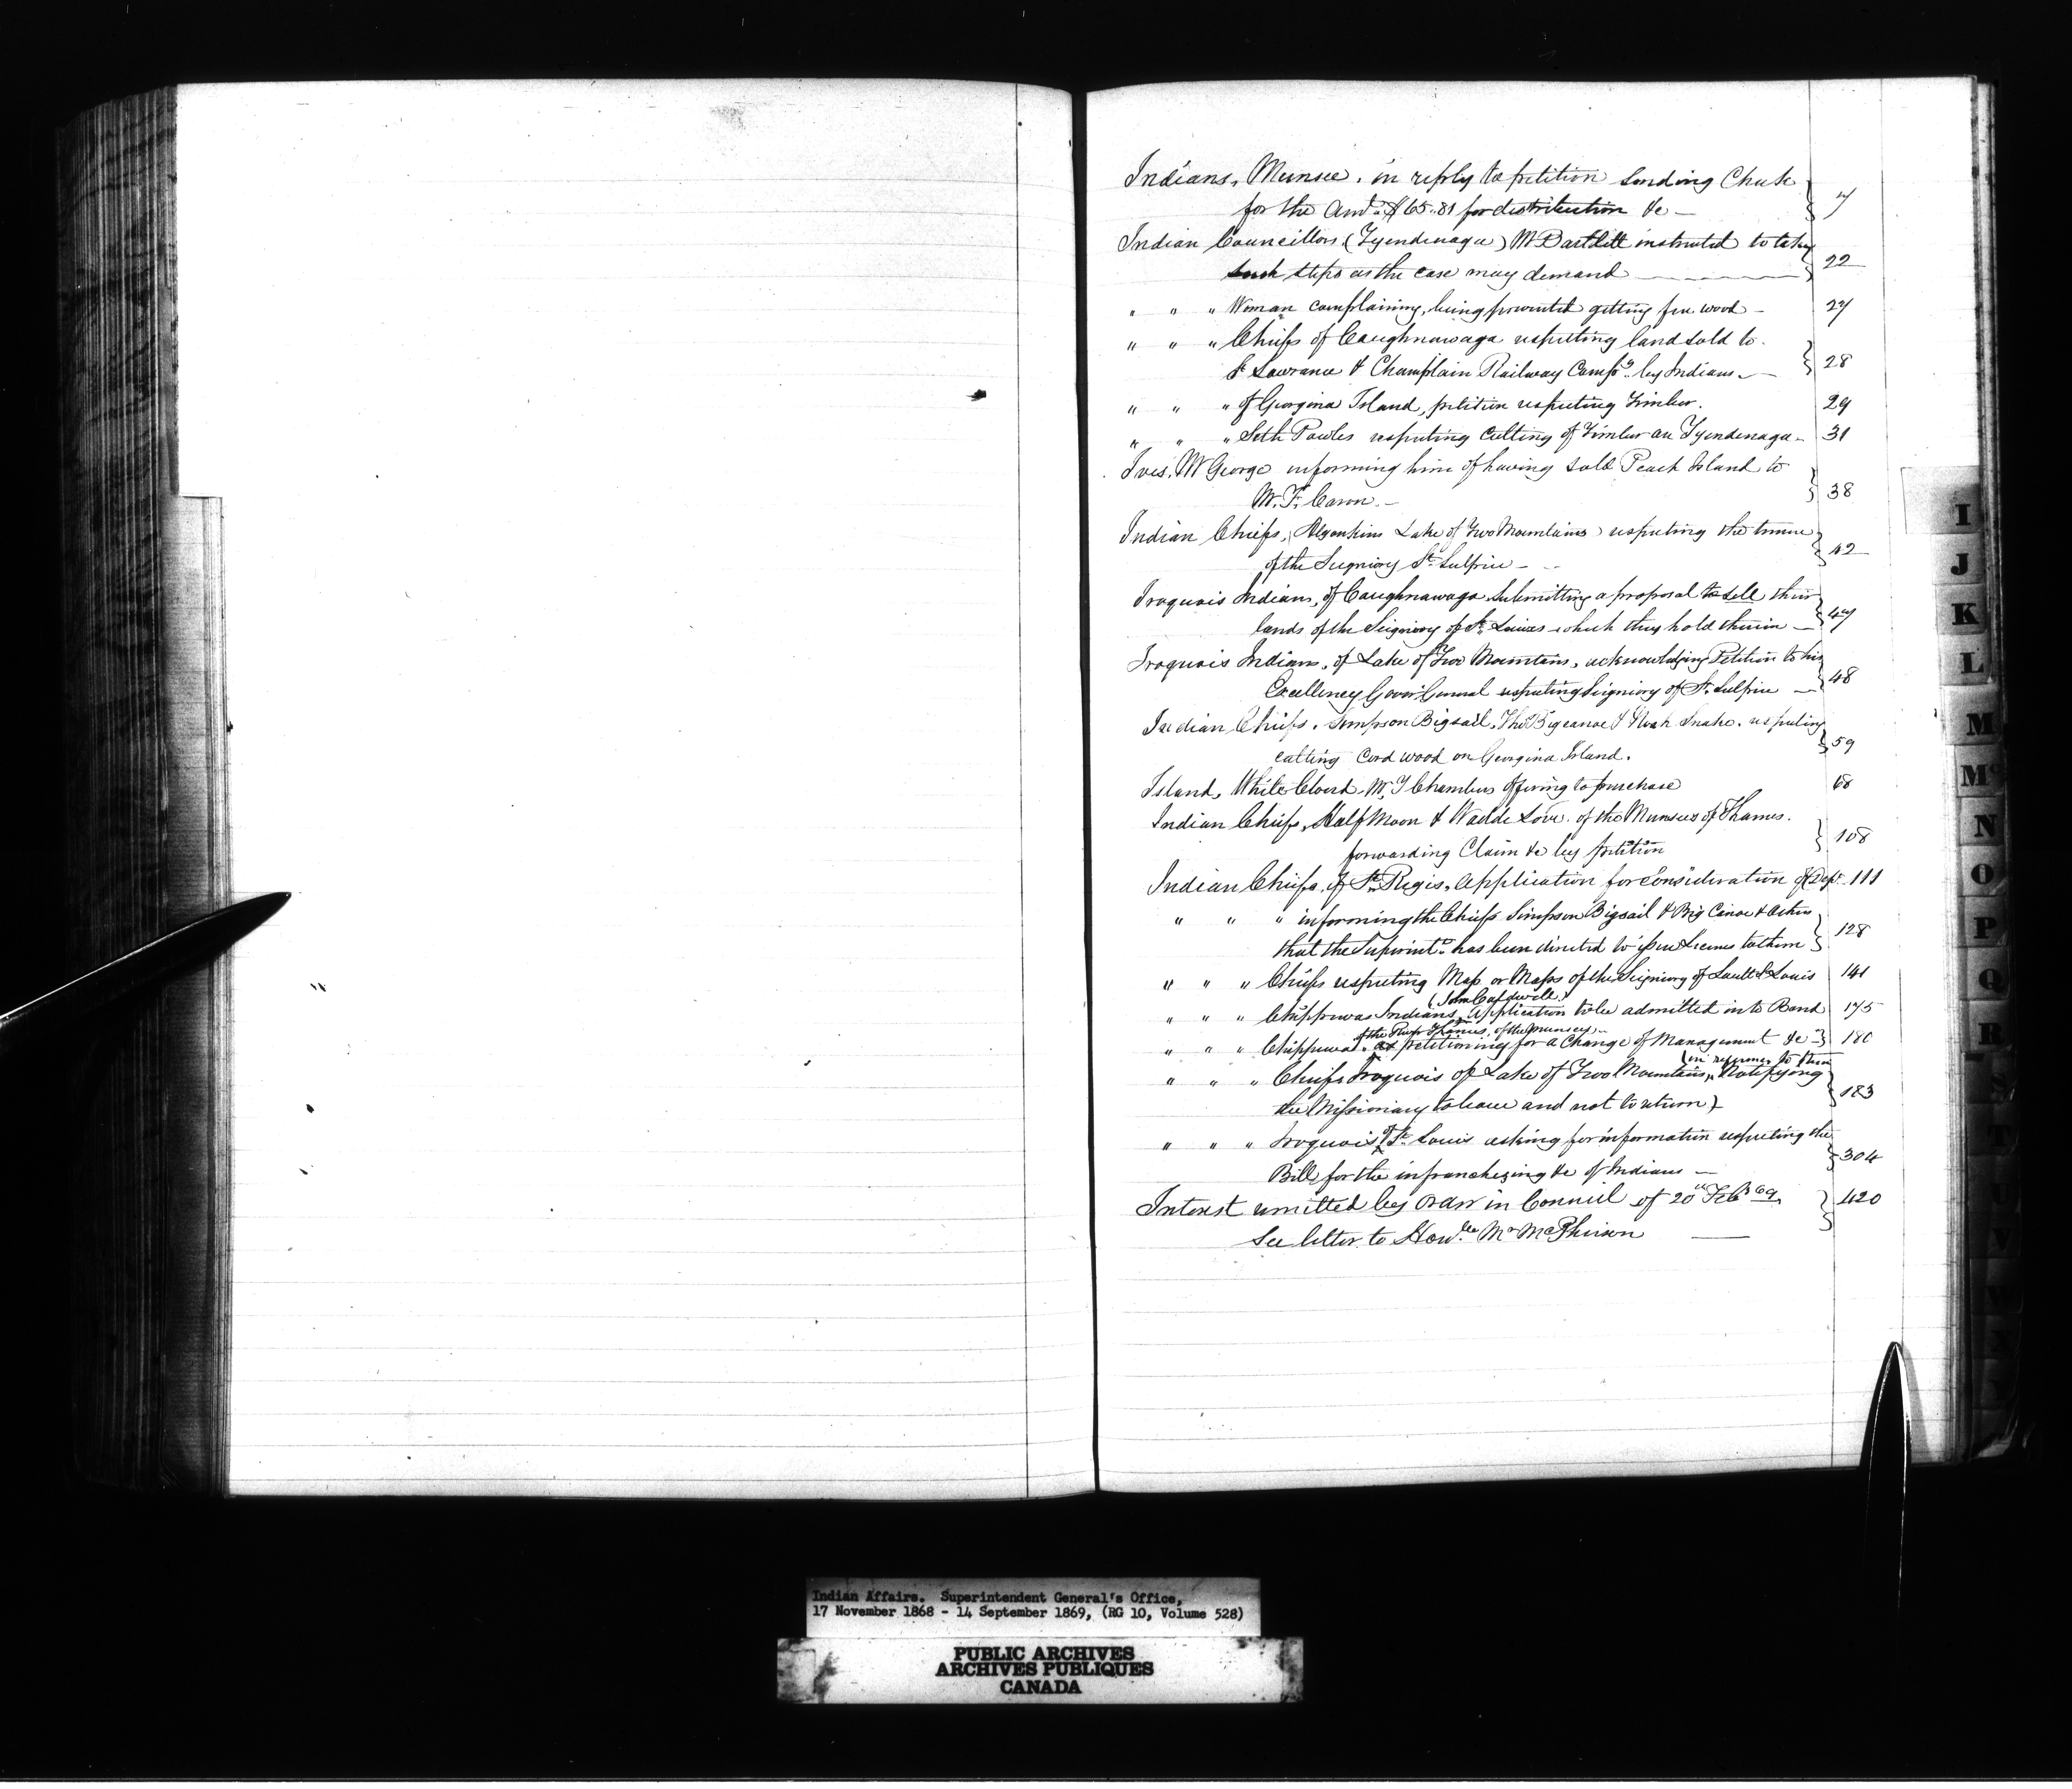 Indians, Munsee. in reply to petition sending Check
for the amt. $65.81 for distribution &c — 7
Indian Councillors (Tyendenaga) Mr Bartlett instructed to take
such steps as the case may demand — 22
" " " Woman complaining, being prevented getting fire wood — 27
" " " Chiefs of Caughnawaga respecting land sold to
St Lawrance & Champlain Railway Compy. by Indians — 28
" " " of Georgina Island, petition respecting Timber. 29
" " " Seth Powles respecting Cutting of Timber on Tyendenaga — 31
Ives, Mr George informing him of having sold Peach Island to
W. F. Caron — 38
Indian Chiefs, Algonkins Lake of Two Mountains respecting the tenure
of the Seigniory St. Sulpice — 42
Iroquois Indians, of Caughnawaga Submitting a proposal to sell their
lands of the Seigniory of St. Louis which they hold therein — 47
Iroquois Indians, of Lake of Two Mountains, acknowledging Petition to his
Excellency Govr General respecting Seigniory of St. Sulpice — 48
Indian Chiefs, Simpson Bigsail, Thos Bigcanoe & Noah Snake. respecting
cutting Cord wood on Georgina Island. 59
Island, White Cloud Mr. T Chambers offering to purchase 68
Indian Chiefs, Half Moon & Waddelove of the Munsees of Thames.
forwarding Claim &c by petition 108
Indian Chiefs, of St. Regis, Application for consideration of Dept. 111
" " " informing the Chiefs Simpson Bigsail & Big Canoe & others
that the Superintt. has been directed to issue License to them 128
" " " Chiefs respecting Map or Maps of the Seigniory of Sault St Louis 141
(Sam Caldwell)
" " " Chippewas Indians, Application to be admitted into Band 175
of the River Thames, of the Munseys —
" " " Chippewas. petitioning for a Change of Management &c — 180
(in reference to their
" " " Chiefs Iroquois of Lake of Two Mountains, Notifying
the Missionary to leave and not to return) 183
" " " Iroquois of St. Louis asking for information respecting the
Bill for the infranchezing &c of Indians — 304
Interest remitted by Order in Council of 20th Feby 69.
See letter to Honble. Mr McPherson — 420
I
J
K
L
M
Mc
N
O
P
Q
R
S
T
U
V
W
X
Y
Indian Affairs. Superintendent General's Office,
17 November 1868 - 14 September 1869, (RG 10, Volume 528)
PUBLIC ARCHIVES
ARCHIVES PUBLIQUES
CANADA